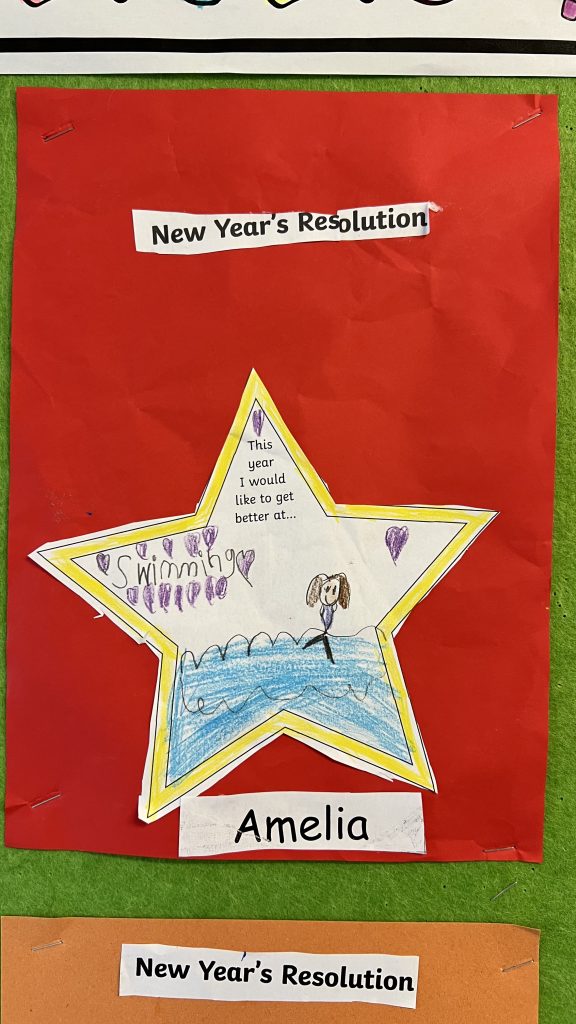 New Year's Resolution
This
year
I would
like to get
better at...
Swimming
Amelia
New Year's Resolution